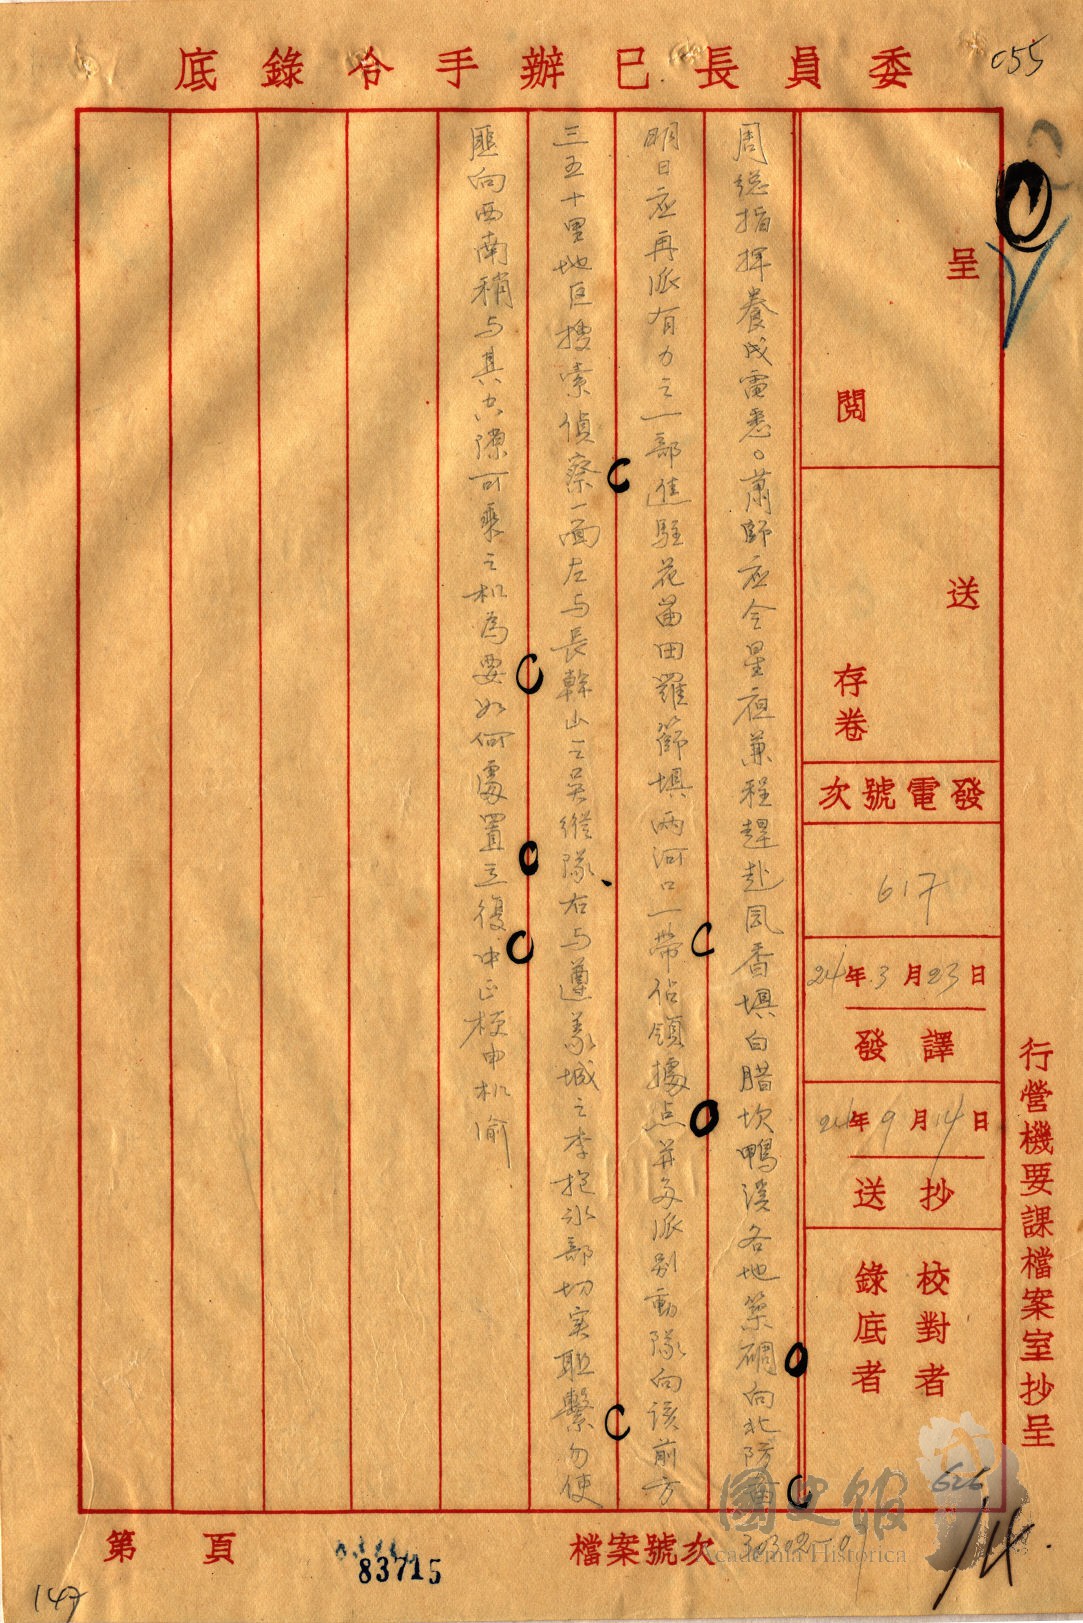 委員長已辦手令錄底
055
呈
閱
送
存卷
發電號次
617
24年3月23日
譯發
24年9月14日
抄送
校對者
錄底者
行營機要課檔案室抄呈
周總指揮養戌電悉。蕭師应令星夜兼程趕赴囘香壩白腊坎鴨溪各地築碉向北防
明日应再派有力之一部進駐花苗田羅篩壩兩河口一帶佔領據点並多派别動隊向该前方
三五十里地区搜索偵察一面左与長幹山之吳縱隊右与遵义城之李抱冰部切实联繫勿使
匪向西南稍与其空隙可乘之机為要如何處置立復中正梗申机渝
國史館
Academia Historica
626
檔案號次
第 頁
83715
147